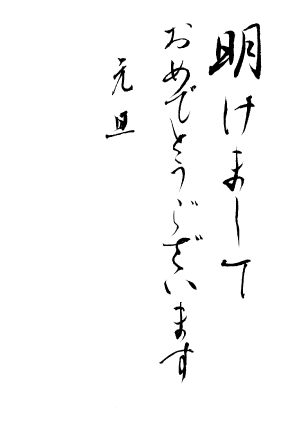 明けまして
おめでとうございます
元旦